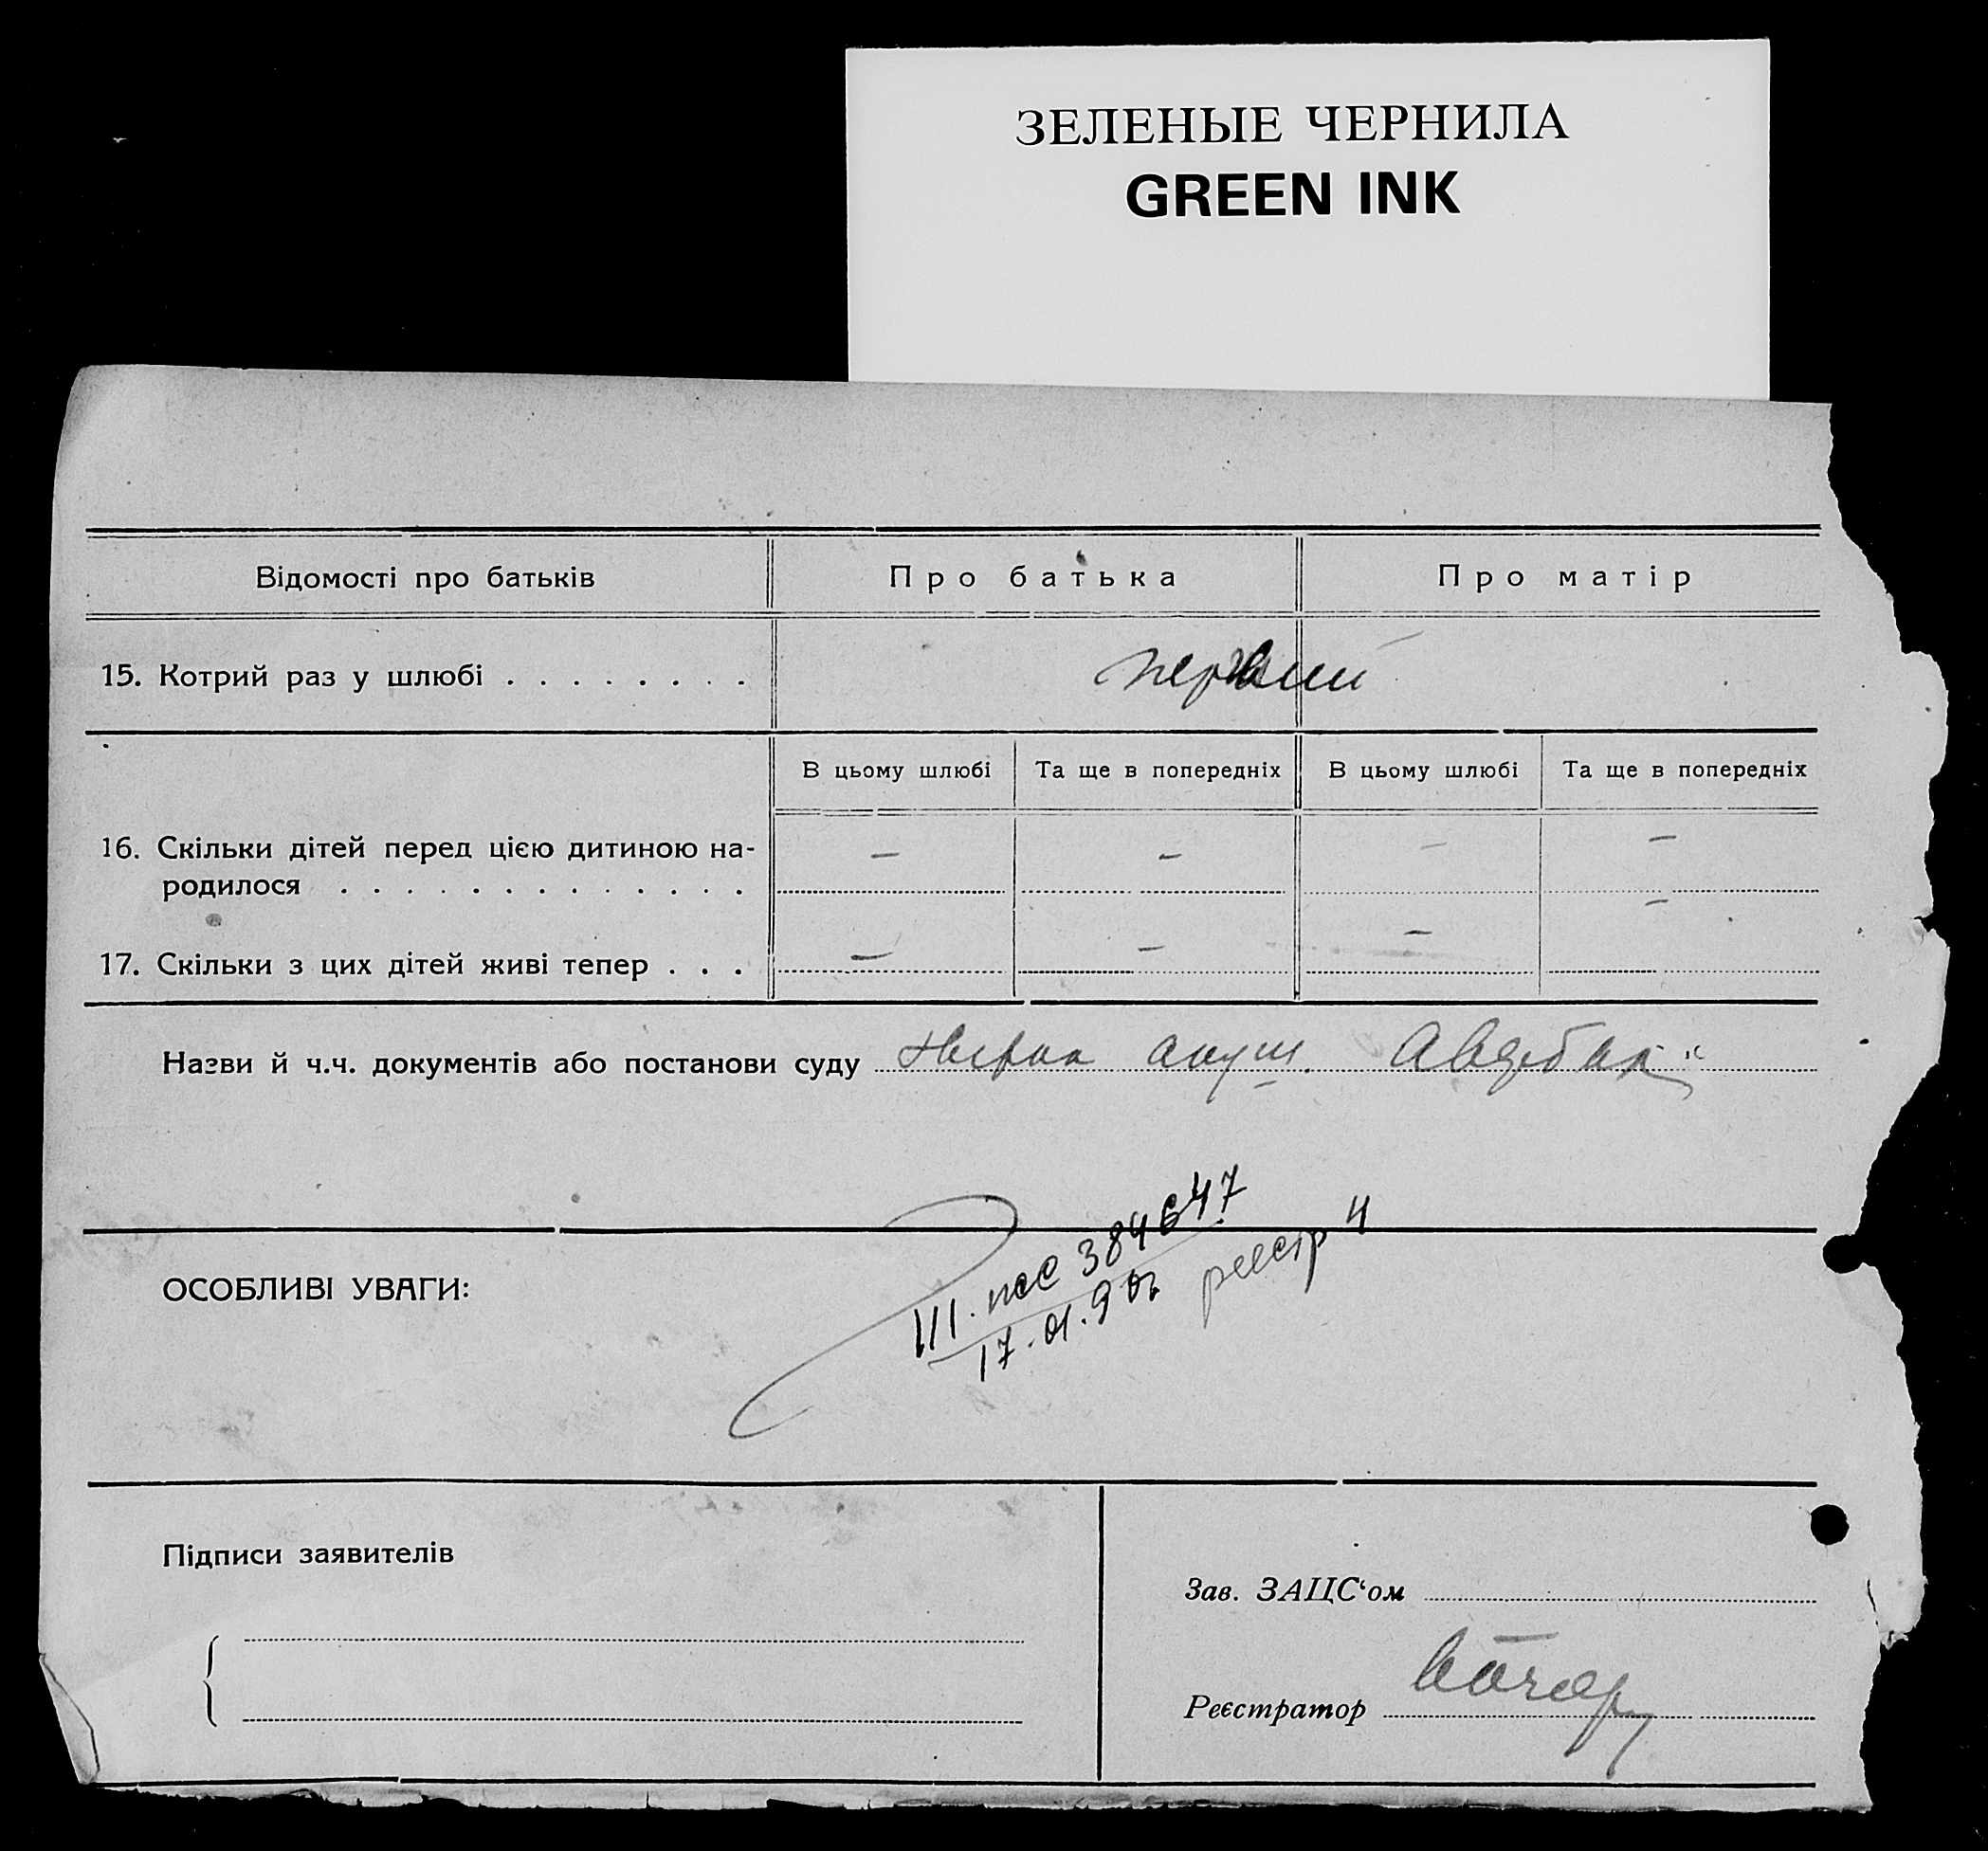 ЗЕЛЕНЫЕ ЧЕРНИЛА
GREEN INK
Відомості про батьків Про батька Про матір
15. Котрий раз у шлюбі . . . . . . . . первий
В цьому шлюбі Та ще в попередніх В цьому шлюбі Та ще в попередніх
16. Скільки дітей перед цією дитиною на- — — — —
родилося . . . . . . . . . . . . .
17. Скільки з цих дітей живі тепер . . . — — — —
Назви й ч.ч. документів або постанови суду акуш.
III. 384647
17.01.90г реестр 4
ОСОБЛИВІ УВАГИ:
Підписи заявителів
Зав. ЗАЦС‘ом
Реєстратор